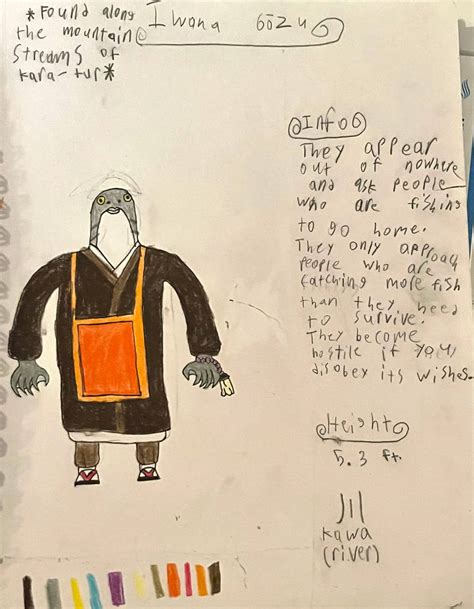 *Found along
the mountain
streams of
Kara-tur*
Iwana Bōzu
Info
They appear
out of nowhere
and ask people
who are fishing
to go home.
They only approach
people who are
catching more fish
than they need
to survive.
They become
hostile if you
disobey its wishes.
Height
5.3 ft.
川
kawa
(river)